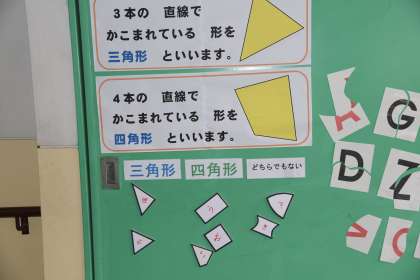 3本の　直線で
かこまれている　形を
三角形　といいます。
4本の　直線で
かこまれている　形を
四角形　といいます。
三角形 四角形 どちらでもない
G
D Z